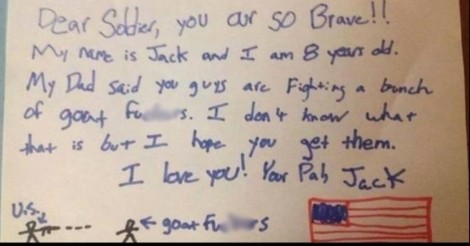 Dear Soldier, you our so Brave!!
My name is Jack and I am 8 years old.
My Dad said you guys are Fighting a bunch
of goat Fu s. I don't know what
that is but I hope you get them.
I love you! Your Pal, Jack
U.S.
goat Fu s